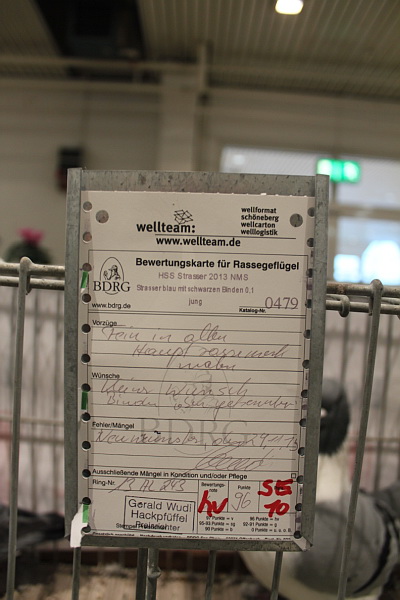 wellteam:
www.wellteam.de
wellformat
schöneberg
wellcarton
welllogistik
Bewertungskarte für Rassegeflügel
BDRG
HSS Strasser 2013 NMS
Strasser blau mit schwarzen Binden 0.1
jung
www.bdrg.de
Katalog-Nr. 0479
Vorzüge
Fein in allen
Haupt rassemerk
malen
Wünsche
kein Wunsch
Binden
Fehler/Mängel
Neumünster, den 29.11.13
Ausschließende Mängel in Kondition und/oder Pflege
Ring-Nr.
Bewertungs-
note
Punkte
hv
96
SE
10
Gerald Wudi
Hackpfüffel
Preisrichter
97 Punkte = v
96 Punkte = hv
95-93 Punkte = sg
92-91 Punkte = g
90 Punkte = b